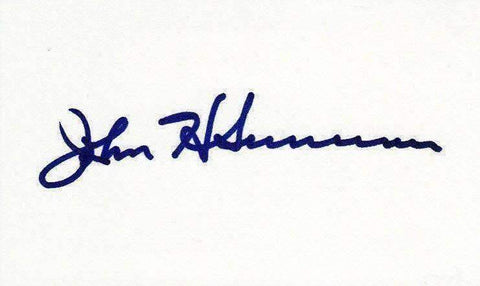 John H Sununu